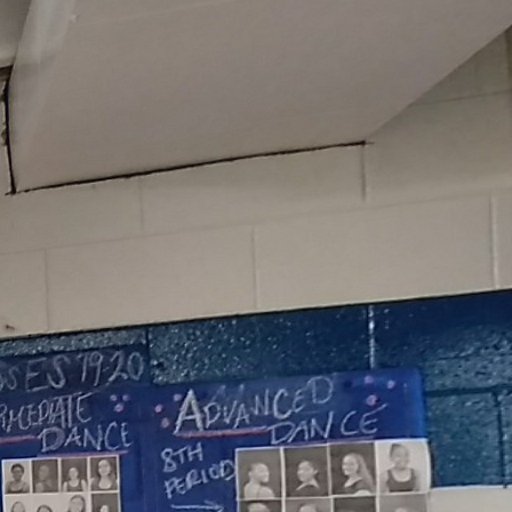 SES '19-20
RMEDIATE
DANCE
ADVANCED
DANCE
8TH
PERIOD